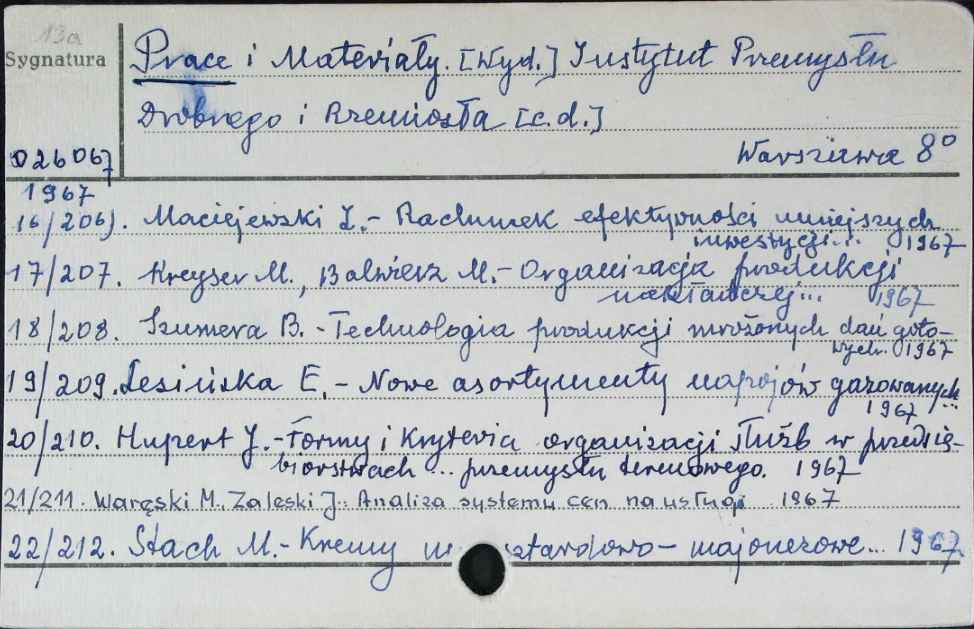 13a
Sygnatura
Prace i Materiały. [Wyd.] Instytut Przemysłu
Drobnego i Rzemiosła [c.d.]
026067
Warszawa 8°
1967
16/206). Maciejewski J.- Rachunek efektywności mniejszych
inwestycji... 1967
17/207. Kreyser M., Balwierz M.- Organizacja produkcji
nakładczej... 1967
18/208. Szumera B. - Technologia produkcji mrożonych dań goto-
wych. 1967
19/209. Lesińska E. - Nowe asortymenty napojów gazowanych...
1967
20/210. Hupert J.-Formy i kryteria organizacji służb w przedsię-
biorstwach .. przemysłu terenowego. 1967
21/211. Waręski M., Zaleski J.. Analiza systemu cen na usługi 1967
22/212. Stach M.- Kremy sztardowo- majonezowe... 1967